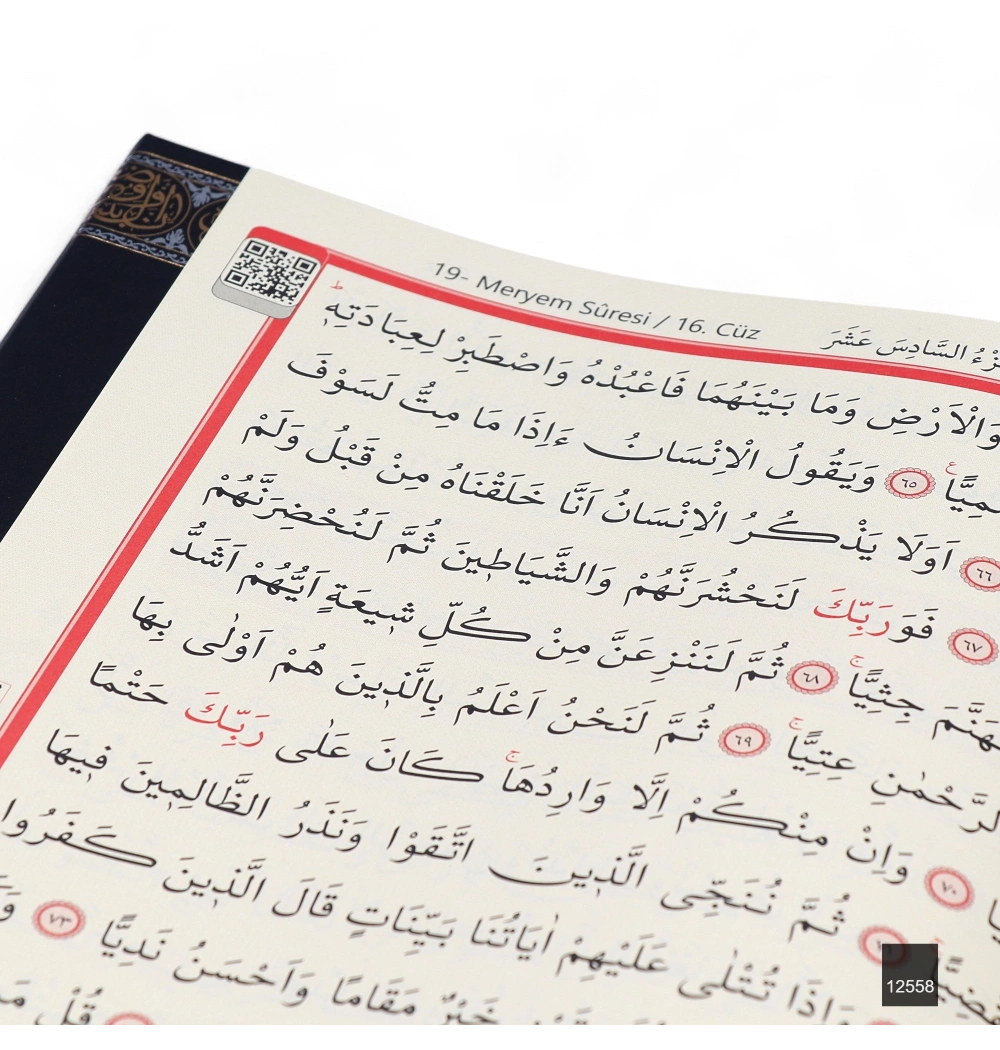 19- Meryem Sûresi / 16. Cüz
السَّادِسَ عَشَرَ
وَالْاَرْضِ وَمَا بَيْنَهُمَا فَاعْبُدْهُ وَاصْطَبِرْ لِعِبَادَتِهٖؕ
٦٥ وَيَقُولُ الْاِنْسَانُ ءَاِذَا مَا مِتُّ لَسَوْفَ
٦٦ اَوَلَا يَذْكُرُ الْاِنْسَانُ اَنَّا خَلَقْنَاهُ مِنْ قَبْلُ وَلَمْ
٦٧ فَوَرَبِّكَ لَنَحْشُرَنَّهُمْ وَالشَّيَاطٖينَ ثُمَّ لَنُحْضِرَنَّهُمْ
جِثِيًّاۚ ٦٨ ثُمَّ لَنَنْزِعَنَّ مِنْ كُلِّ شٖيعَةٍ اَيُّهُمْ اَشَدُّ
الرَّحْمٰنِ عِتِيًّاۚ ٦٩ ثُمَّ لَنَحْنُ اَعْلَمُ بِالَّذٖينَ هُمْ اَوْلٰى بِهَا
٧٠ وَاِنْ مِنْكُمْ اِلَّا وَارِدُهَاۚ كَانَ عَلٰى رَبِّكَ حَتْمًا
ثُمَّ نُنَجِّى الَّذٖينَ اتَّقَوْا وَنَذَرُ الظَّالِمٖينَ فٖيهَا
وَاِذَا تُتْلٰى عَلَيْهِمْ اٰيَاتُنَا بَيِّنَاتٍ قَالَ الَّذٖينَ كَفَرُوا
خَيْرٌ مَقَامًا وَاَحْسَنُ نَدِيًّا ٧٣
قُلْ
12558